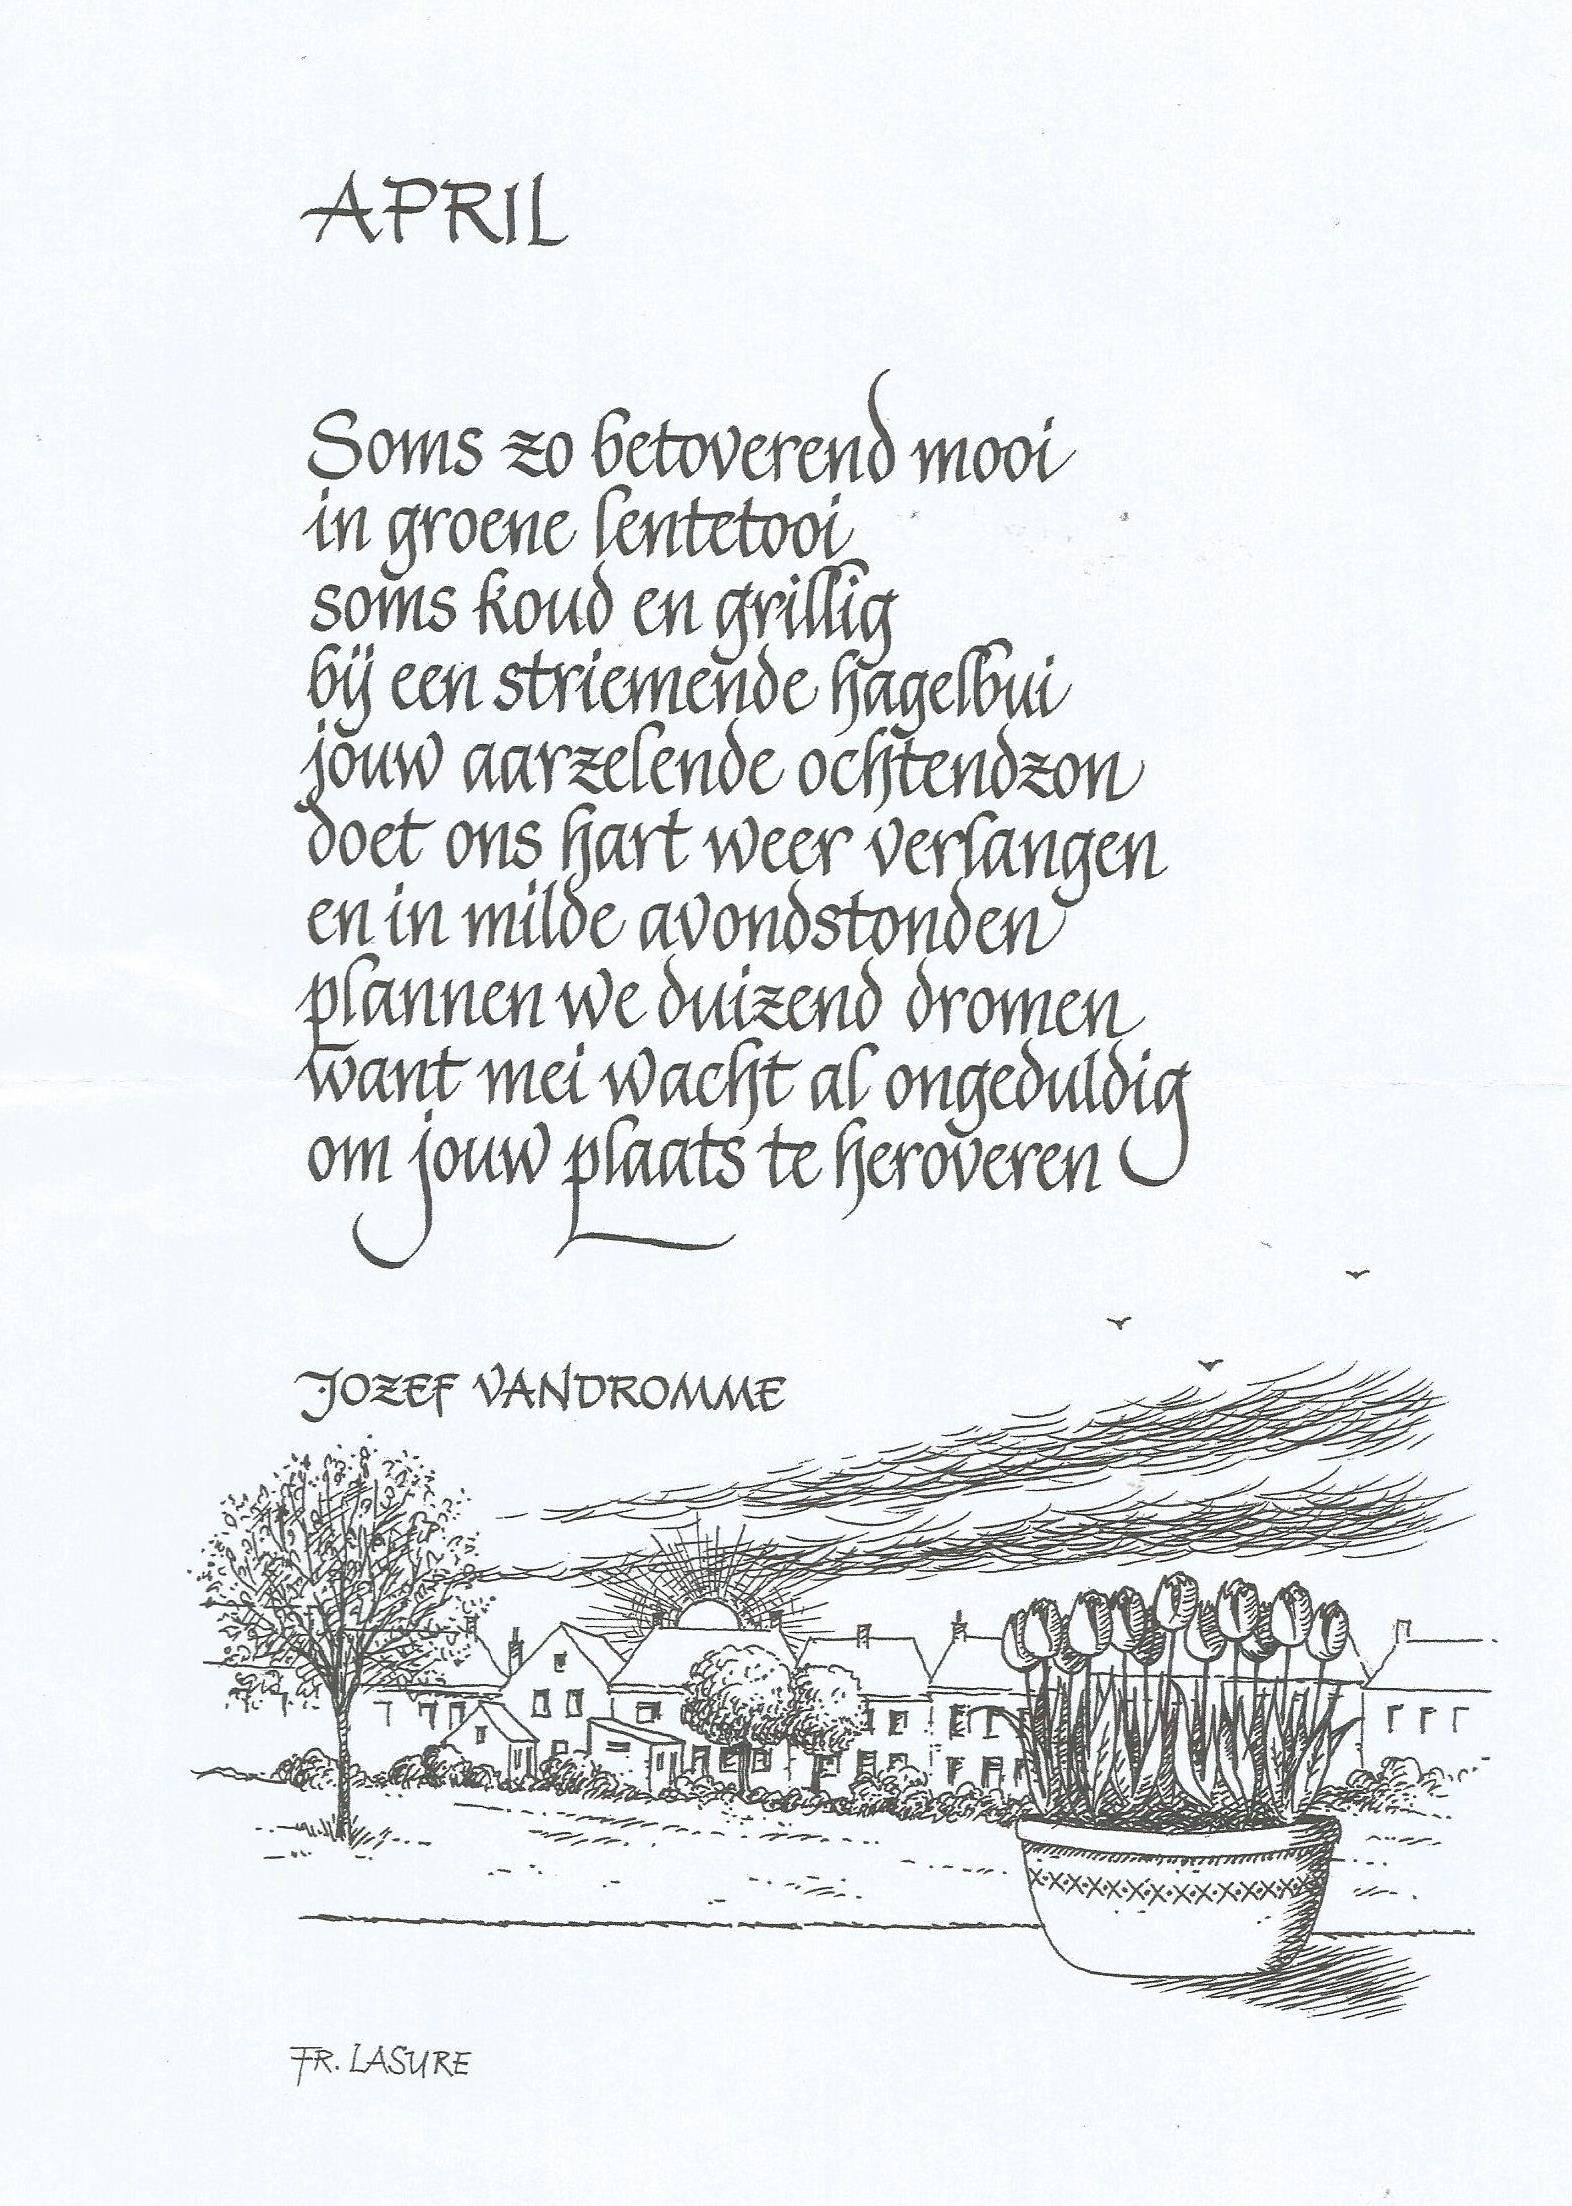 APRIL
Soms zo betoverend mooi
in groene lentetooi
soms koud en grillig
bij een striemende hagelbui
jouw aarzelende ochtendzon
doet ons hart weer verlangen
en in milde avondstonden
plannen we duizend dromen
want mei wacht al ongeduldig
om jouw plaats te heroveren
JOZEF VANDROMME
FR. LASURE